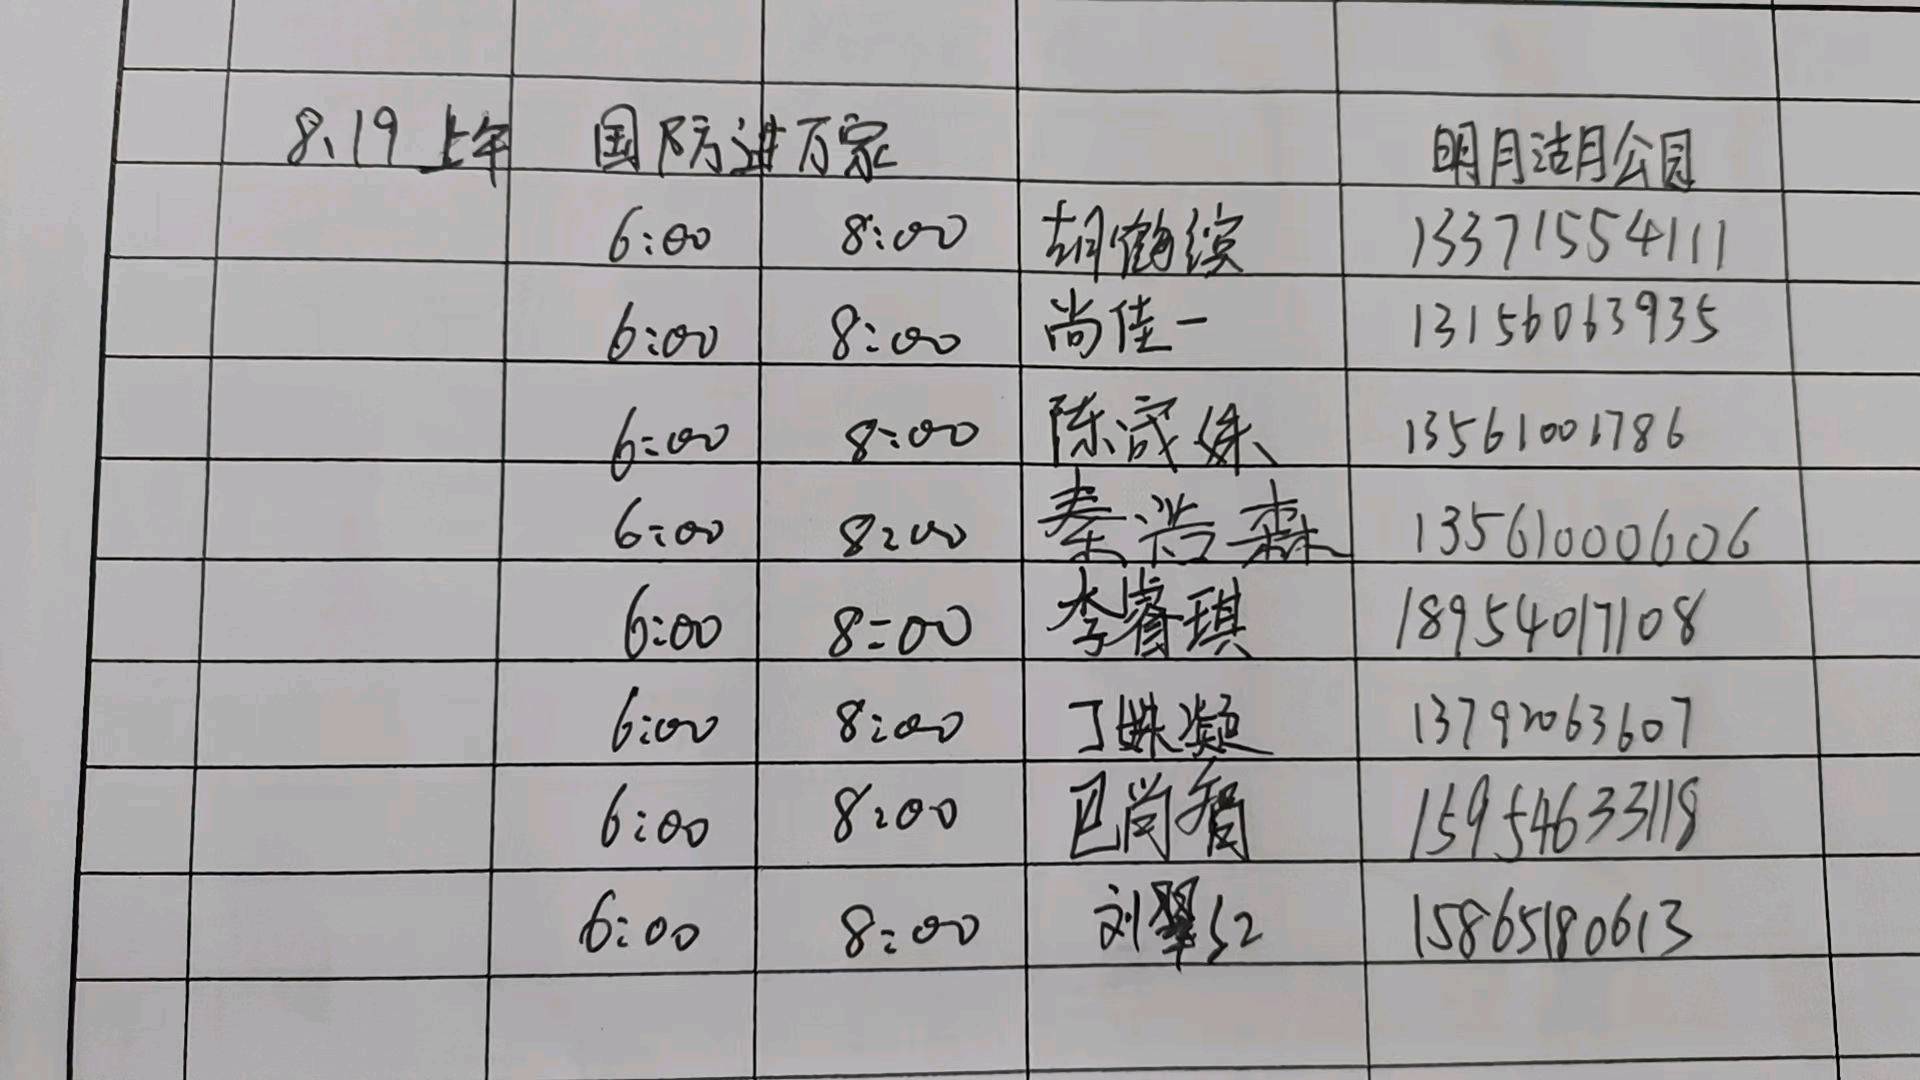 8.19 上午 国防进万家 明月湖公园
6:00 8:00 胡鹤缤 13371554111
6:00 8:00 尚佳一 13156063935
6:00 8:00 陈 姝 13561001786
6:00 8:00 秦浩森 13561000606
6:00 8:00 李睿琪 18954017108
6:00 8:00 丁姝凝 13792063607
6:00 8:00 尚 15954633118
6:00 8:00 刘翠 15865180613